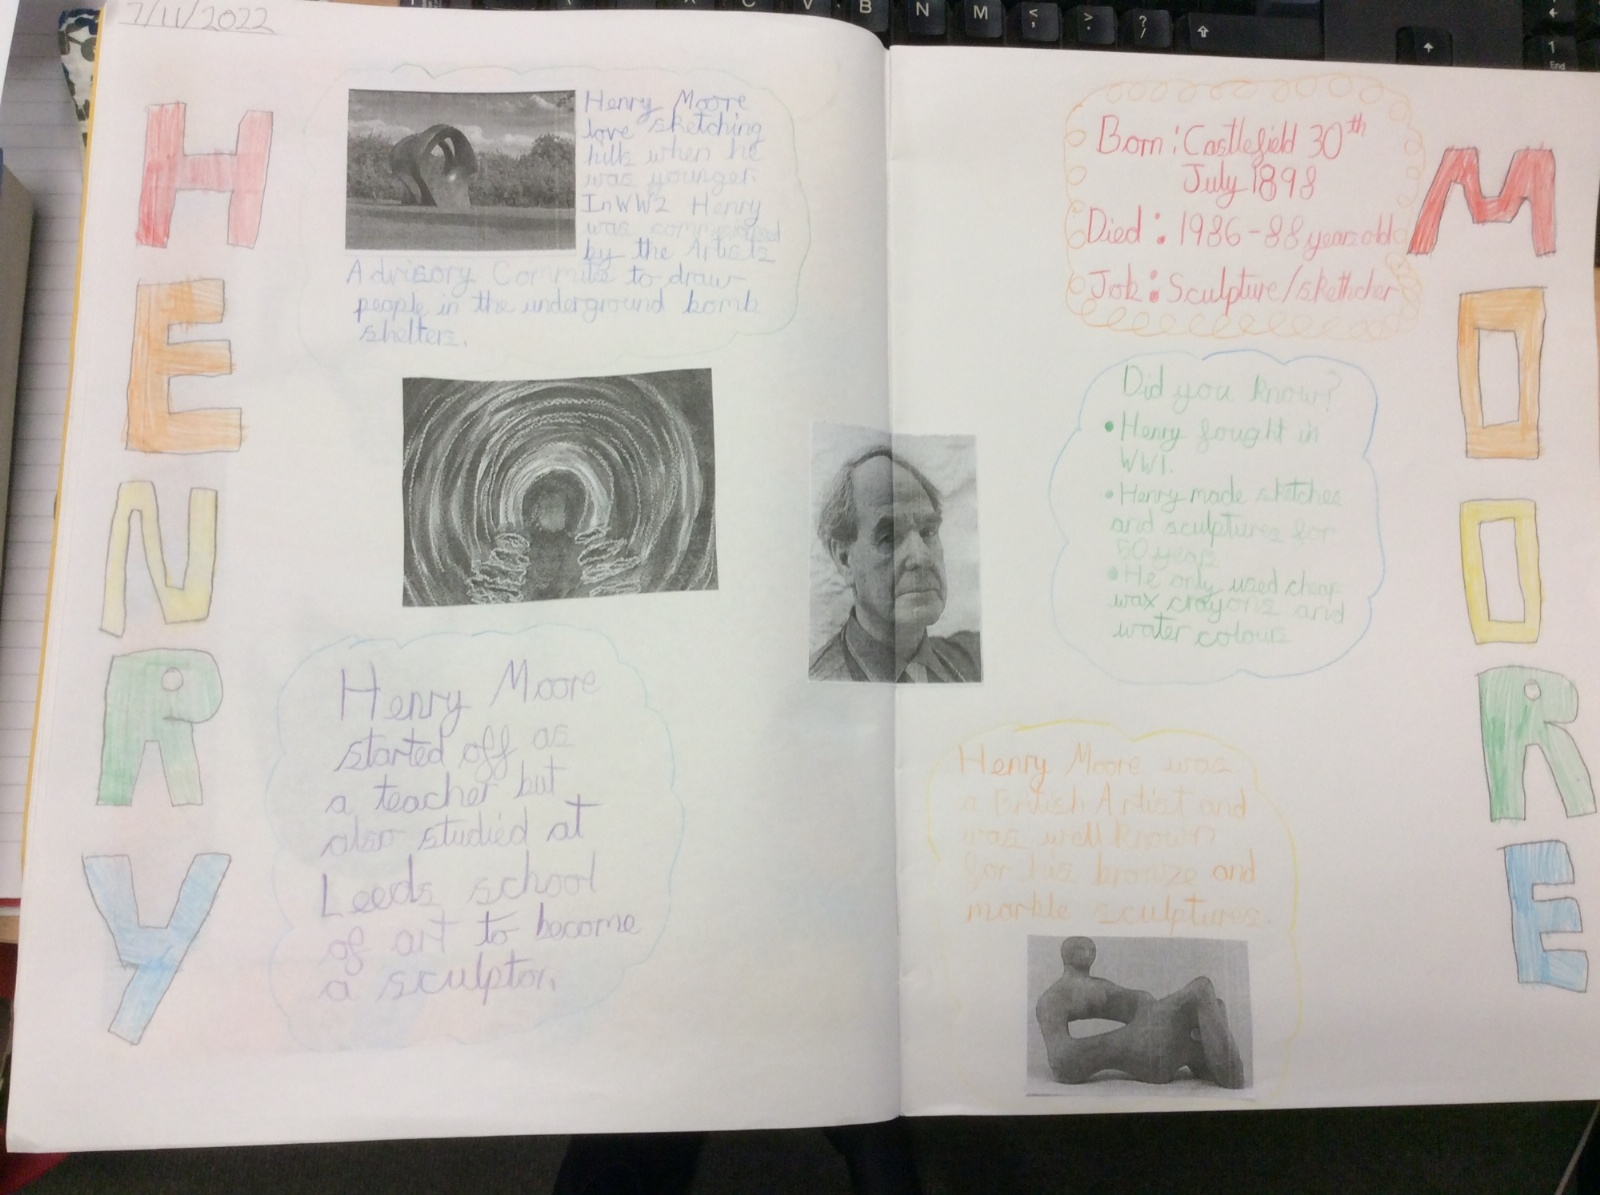 7/11/2022
HENRY
Henry Moore
love sketching
hills when he
was younger.
In WW2 Henry
was
by the Artists
Advisory Commite to draw
people in the underground bomb
shelters.
Henry Moore
started off as
a teacher but
also studied at
Leeds school
of art to become
a sculptor.
MOORE
Born: Castlefield 30th
July 1898
Died: 1986-88 years old
Job: Sculpture/skethcher
Did you know?
• Henry fought in
WW1.
• Henry made sketches
and sculptures for
years
• He only used cheap
wax crayons and
water colours
Henry Moore was
a British Artist and
was well known
for his bronze and
marble sculptures.
C V B N M < , > . ? /
1
End